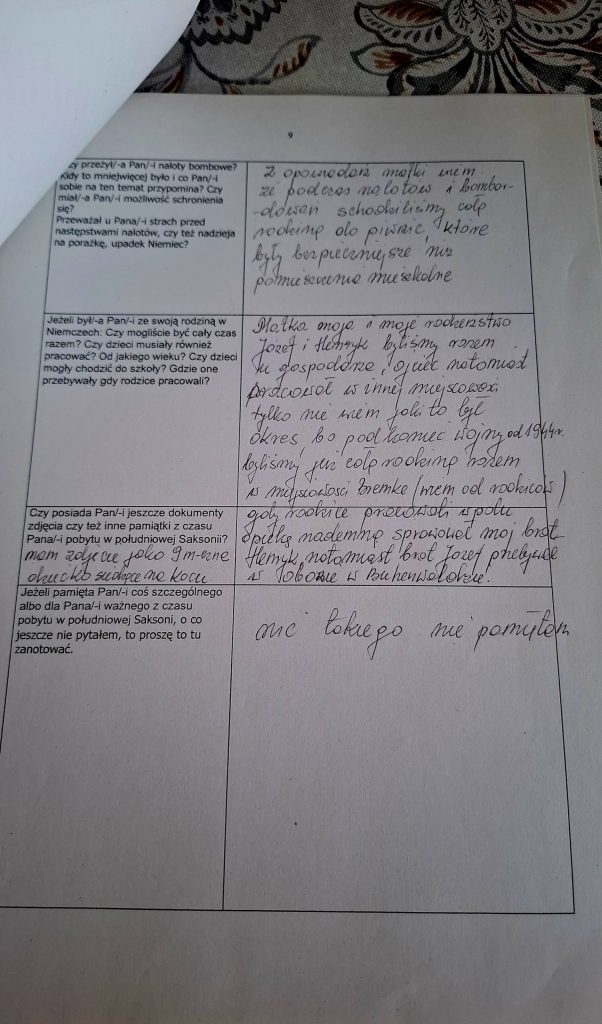 9
zy przeżył/-a Pan/-i naloty bombowe?
Kidy to mniejwięcej było i co Pan/-i
sobie na ten temat przypomina? Czy
miał/-a Pan/-i możliwość schronienia
się?
Przeważał u Pana/-i strach przed
następstwami nalotów, czy też nadzieja
na porażkę, upadek Niemiec?
z opowiadań matki wiem
że podczas nalotów i bombar-
-dowań schodziliśmy całą
rodziną do piwnic, które
były bezpieczniejsze niż
pomieszczenia mieszkalne
Jeżeli był/-a Pan/-i ze swoją rodziną w
Niemczech: Czy mogliście być cały czas
razem? Czy dzieci musiały również
pracować? Od jakiego wieku? Czy dzieci
mogły chodzić do szkoły? Gdzie one
przebywały gdy rodzice pracowali?
Matka moja i moje rodzeństwo
Józef i Henryk byliśmy razem
u gospodarza, ojciec natomiast
pracował w innej miejscowości
tylko nie wiem jaki to był
okres, bo pod koniec wojny od 1944r.
byliśmy już całą rodziną razem
w miejscowości Bremke (wiem od rodziców)
gdy rodzice pracowali w polu
opiekę nademną sprawował mój brat
Henryk, natomiast brat Józef przebywał
w obozie w Buhenwaldzie.
Czy posiada Pan/-i jeszcze dokumenty
zdjęcia czy też inne pamiątki z czasu
Pana/-i pobytu w południowej Saksonii?
mam zdjęcie jako 9 m-czne
dziecko siedzące na kocu
Jeżeli pamięta Pan/-i coś szczególnego
albo dla Pana/-i ważnego z czasu
pobytu w południowej Saksoni, o co
jeszcze nie pytałem, to proszę to tu
zanotować.
nic takiego nie pamiętam